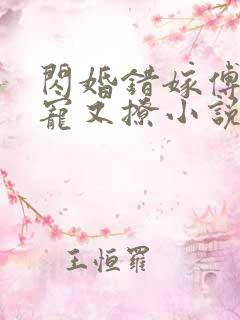 閃婚錯嫁傅
寵又撩小說
王恒羅